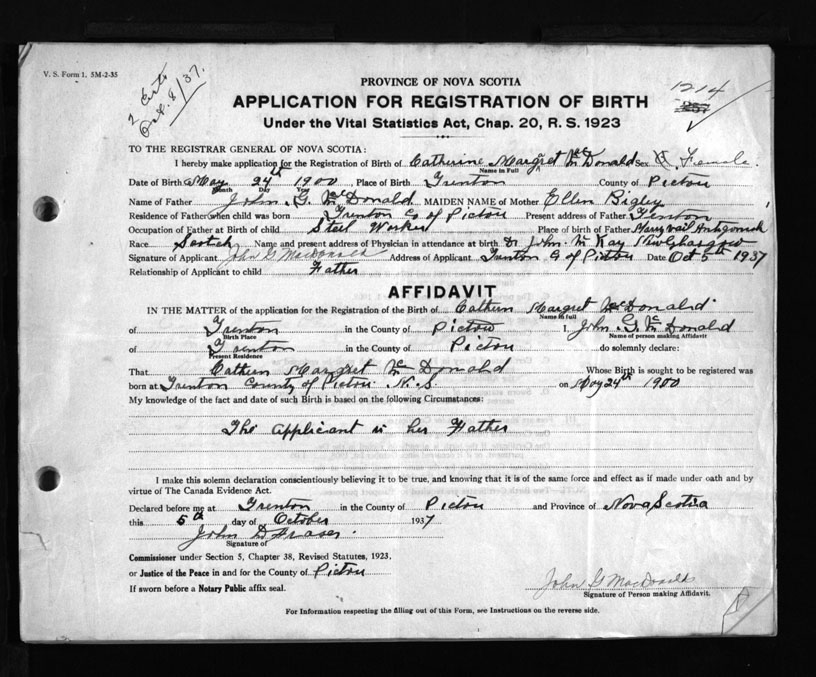 V. S. Form 1. 5M-2-35
2 Certs
Oct. 8/37.
1214
257
PROVINCE OF NOVA SCOTIA
APPLICATION FOR REGISTRATION OF BIRTH
Under the Vital Statistics Act, Chap. 20, R. S. 1923
TO THE REGISTRAR GENERAL OF NOVA SCOTIA:
I hereby make application for the Registration of Birth of Catherine Margret McDonald Sex Female.
Name in Full
Date of Birth May 24th 1900, Place of Birth Trenton County of Pictou
Month Day Year
Name of Father John G. McDonald MAIDEN NAME of Mother Ellen Bigley
Residence of Father when child was born Trenton Co of Pictou Present address of Father Trenton
Occupation of Father at Birth of child Steel Worker Place of Birth of Father Marryvail Antigonish
Race Scotch Name and present address of Physician in attendance at birth Dr John McKay New Glasgow
Signature of Applicant John G MacDonald Address of Applicant Trenton Co of Pictou Date Oct 5th 1937
Relationship of Applicant to child Father
AFFIDAVIT
IN THE MATTER of the application for the Registration of the Birth of Cathern Margret McDonald
Name in full
of Trenton in the County of Pictou I, John G. McDonald
Birth Place Name of person making Affidavit
of Trenton in the County of Pictou do solemnly declare:
Present Residence
That Cathern Margret McDonald Whose Birth is sought to be registered was
born at Trenton County of Pictou N. S. on May 24th 1900
My knowledge of the fact and date of such Birth is based on the following Circumstances:
The Applicant is her Father
I make this solemn declaration conscientiously believing it to be true, and knowing that it is of the same force and effect as if made under oath and by
virtue of The Canada Evidence Act.
Declared before me at Trenton in the County of Pictou and Province of Nova Scotia
this 5th day of October 1937
John D Fraser
Signature of
Commissioner under Section 5, Chapter 38, Revised Statutes, 1923.
or Justice of the Peace in and for the County of Pictou
If sworn before a Notary Public affix seal.
John G MacDonald
Signature of Person making Affidavit.
For Information respecting the filling out of this Form, see Instructions on the reverse side.